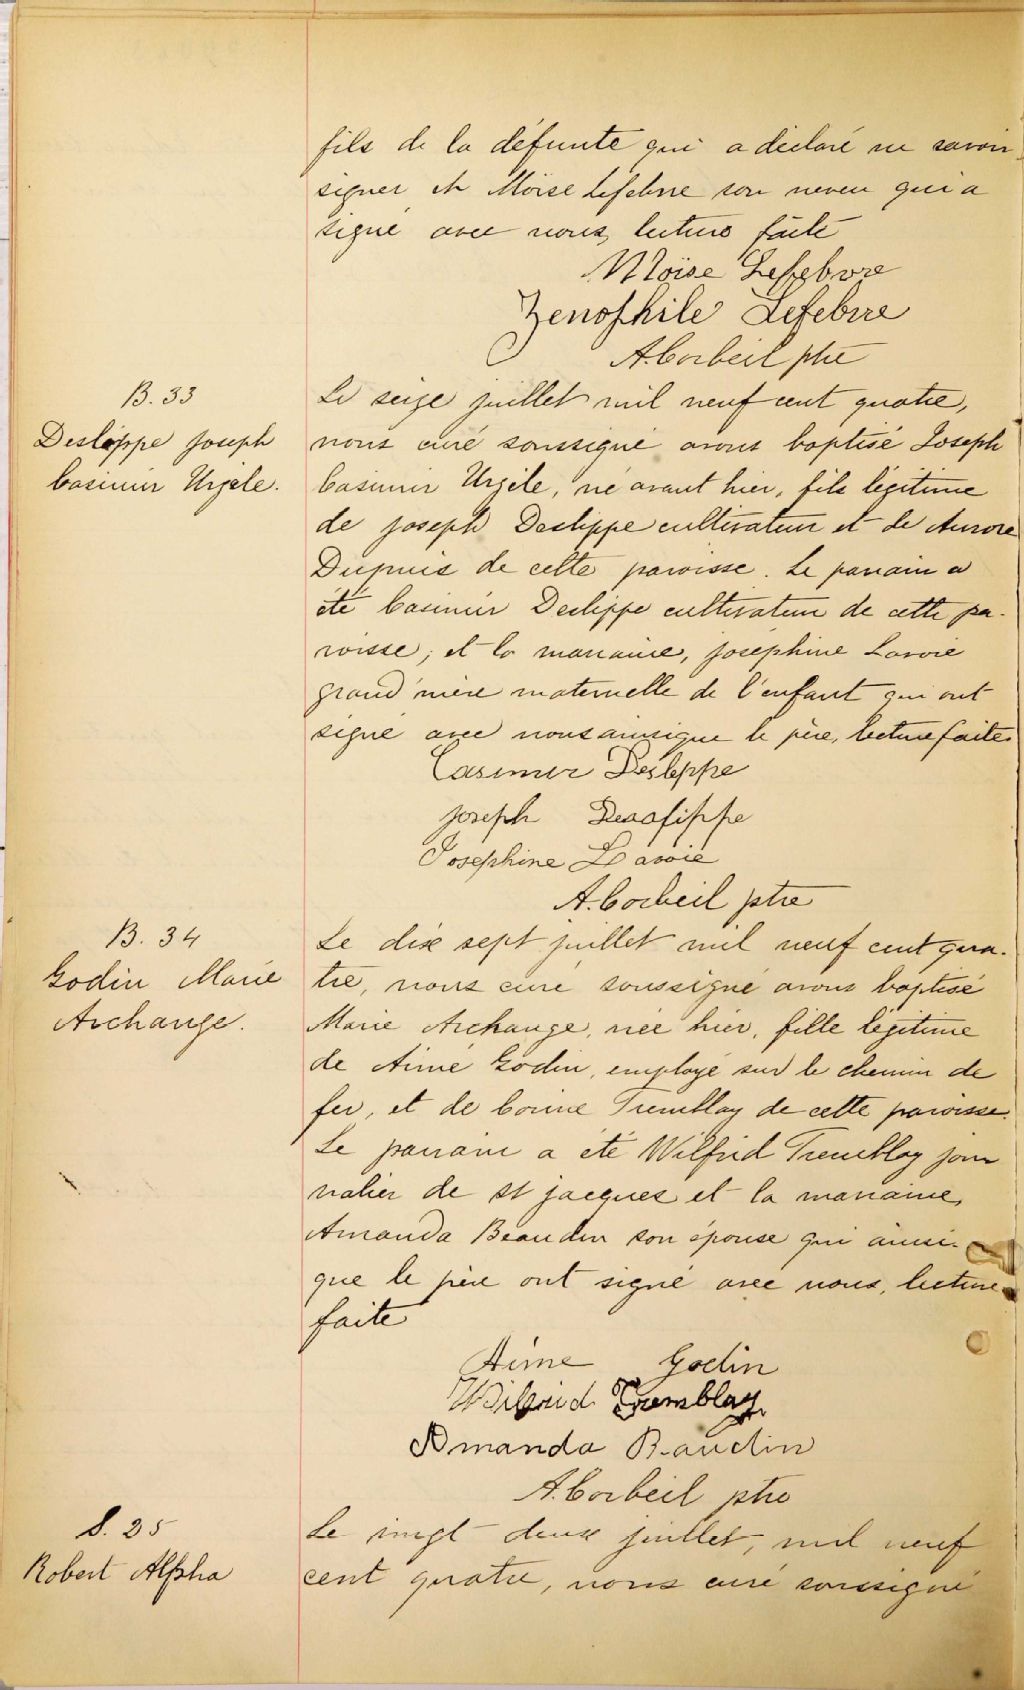 fils de la défunte qui a déclaré ne savoir
signer et Moïse Lefebvre son neveu qui a
signé avec nous, lecture faite
Moïse Lefebvre
Zenophile Lefebvre
A. Corbeil ptre
B. 33
Deslippe Joseph
Casimir Urgèle.
Le seize juillet mil neuf cent quatre,
nous curé soussigné avons baptisé Joseph
Casimir Urgèle, né avant hier, fils légitime
de Joseph Deslippe cultivateur et de Aurore
Dupuis de cette paroisse. Le parrain a
été Casimir Deslippe cultivateur de cette pa-
roisse, et la marraine, Joséphine Lavoie
grand'mère maternelle de l'enfant qui ont
signé avec nous ainsi que le père, lecture faite
Casimir Deslippe
Joseph Desslippe
Josephine Lavoie
A. Corbeil ptre
B. 34
Godin Marie
Archange.
Le dix sept juillet mil neuf cent qua-
tre, nous curé soussigné avons baptisé
Marie Archange, née hier, fille légitime
de Aimé Godin, employé sur le chemin de
fer, et de Corine Tremblay de cette paroisse.
Le parrain a été Wilfrid Tremblay jour
nalier de St Jacques et la marraine,
Amanda Beaudin son épouse qui ainsi-
que le père ont signé avec nous, lecture
faite
Aime Godin
Wilfrid Tremblay
Amanda Baudin
A. Corbeil ptre
S. 25
Robert Alpha
Le vingt deux juillet, mil neuf
cent quatre, nous curé soussigné